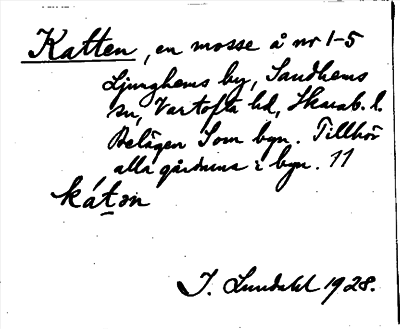 Katten, en mosse å nr 1-5
Ljunghems by, Sandhems
sn, Vartofta hd, Skarab. l.
Belägen S om byn. Tillhör
alla gårdarna i byn. 11
kát̲ən
I. Lundahl 1928.